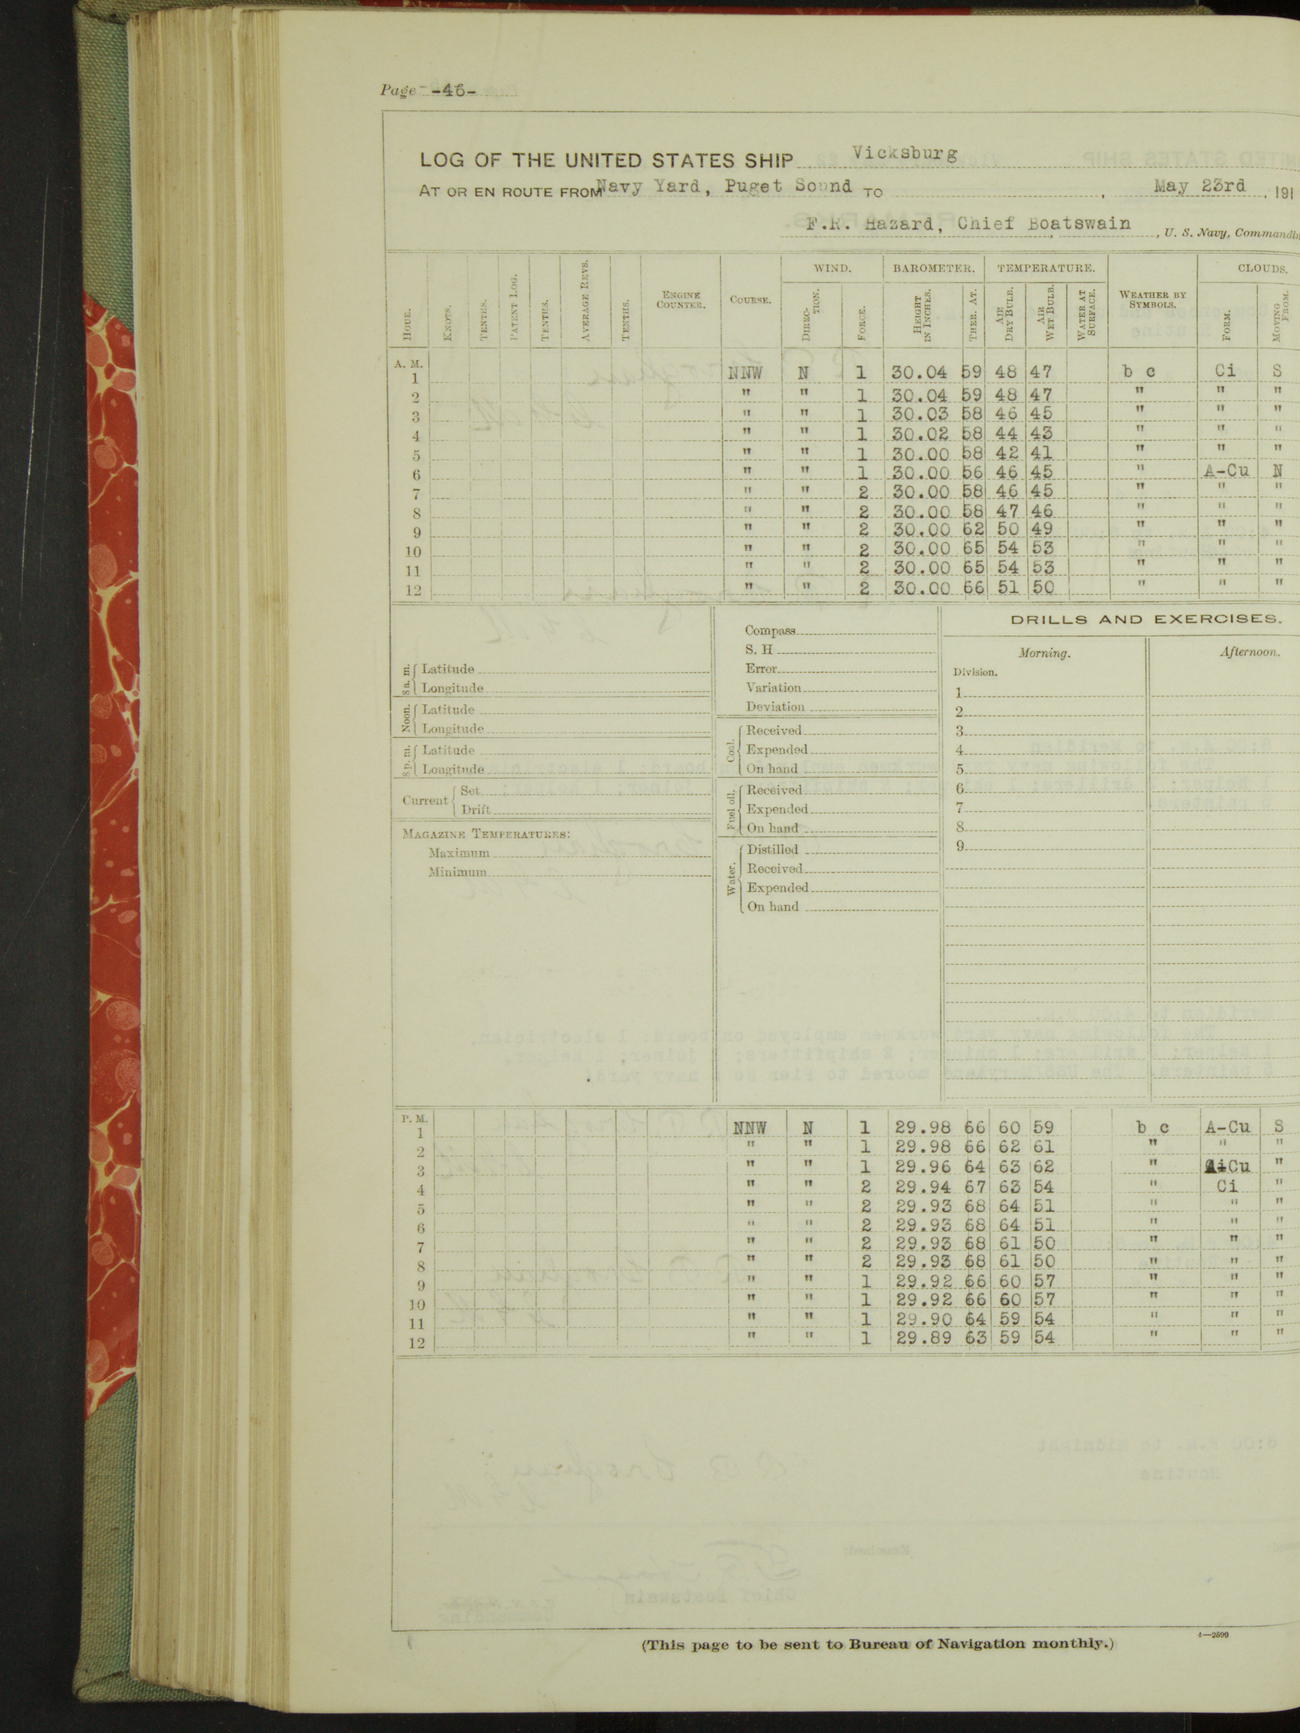 Page -46-
LOG OF THE UNITED STATES SHIP Vicksburg
AT OR EN ROUTE FROM Navy Yard, Puget Sound TO , May 23rd, 191
F.R. Hazard, Chief Boatswain, U. S. Navy, Commandin
WIND. BAROMETER. TEMPERATURE. CLOUDS.
HOUR. KNOTS. TENTHS. PATENT LOG. TENTHS. AVERAGE REVS. TENTHS. ENGINE COUNTER. COURSE. DIREC-TION. FORCE. HEIGHT IN INCHES. THER. AT. AIR DRY BULB. AIR WET BULB. WATER AT SURFACE. WEATHER BY SYMBOLS. FORM. MOVING FROM.
A. M.
1 NNW N 1 30.04 59 48 47 b c Ci S
2 " " 1 30.04 59 48 47 " " "
3 " " 1 30.03 58 46 45 " " "
4 " " 1 30.02 58 44 43 " " "
5 " " 1 30.00 58 42 41 " " "
6 " " 1 30.00 56 46 45 " A-Cu N
7 " " 2 30.00 58 46 45 " " "
8 " " 2 30.00 58 47 46 " " "
9 " " 2 30.00 62 50 49 " " "
10 " " 2 30.00 65 54 53 " " "
11 " " 2 30.00 65 54 53 " " "
12 " " 2 30.00 66 51 50 " " "
8 a. m. Latitude
Longitude
Noon. Latitude
Longitude
8 p. m. Latitude
Longitude
Current Set
Drift
MAGAZINE TEMPERATURES:
Maximum
Minimum
Compass
S. H
Error
Variation
Deviation
Coal. Received
Expended
On hand
Fuel oil. Received
Expended
On hand
Water. Distilled
Received
Expended
On hand
DRILLS AND EXERCISES.
Morning. Afternoon.
Division.
1
2
3
4
5
6
7
8
9
P. M.
1 NNW N 1 29.98 66 60 59 b c A-Cu S
2 " " 1 29.98 66 62 61 " " "
3 " " 1 29.96 64 63 62 " Cu "
4 " " 2 29.94 67 63 54 " Ci "
5 " " 2 29.93 68 64 51 " " "
6 " " 2 29.93 68 64 51 " " "
7 " " 2 29.93 68 61 50 " " "
8 " " 2 29.93 68 61 50 " " "
9 " " 1 29.92 66 60 57 " " "
10 " " 1 29.92 66 60 57 " " "
11 " " 1 29.90 64 59 54 " " "
12 " " 1 29.89 63 59 54 " " "
(This page to be sent to Bureau of Navigation monthly.)
4—2599